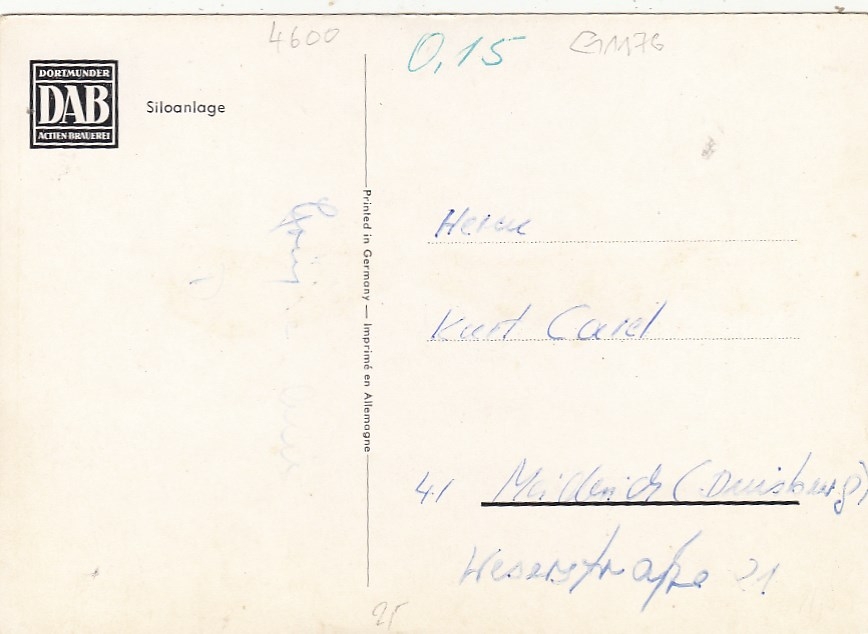 4600
0,15
GM76
DORTMUNDER
DAB
ACTIEN-BRAUEREI
Siloanlage
Printed in Germany — Imprimé en Allemagne
Herrn
Kurt
41 Meiderich (Duisburg)
Weserstraße 21